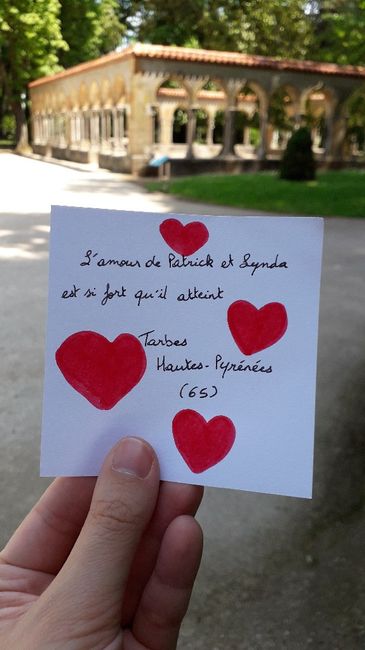 L'amour de Patrick et Lynda
est si fort qu'il atteint
Tarbes
Hautes-Pyrénées
(65)